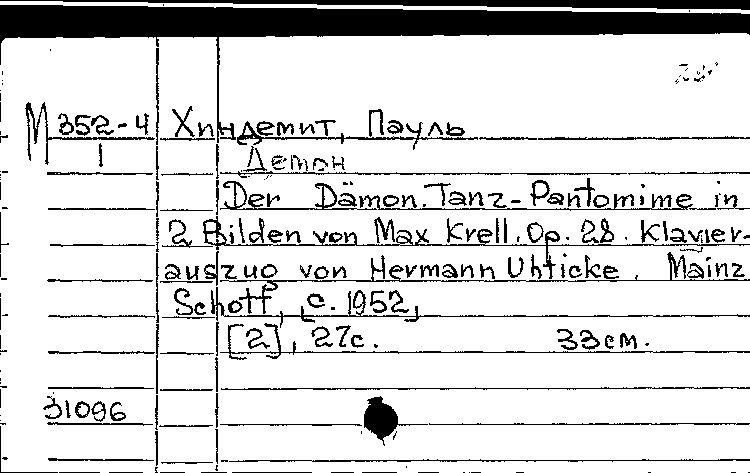 М 352-4 Хиндемит, Пауль
1 Демон
Der Dämon. Tanz-Pantomime in
2 Bilden von Max Krell. Op. 28. Klavier-
auszug von Hermann Uhticke. Mainz
Schott, [c. 1952]
[2], 27с. 33см.
31096